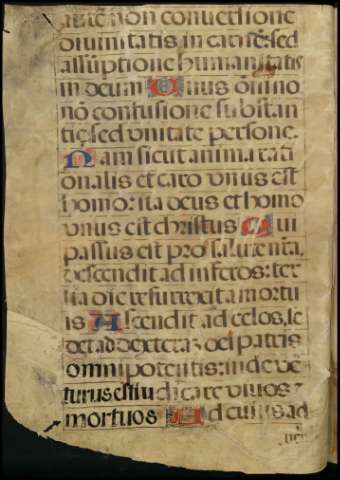 autē non conversione
divinitatis in carnē: sed
assūptione humanitatis
in deum Unus oīnino
nō confusione substan
tiē, sed unitate persone.
Nam sicut anima rati
onalis et caro unus est
homo: ita deus et homo
unus est christus Qui
passus est pro salute nrā,
descendit ad inferos: ter
tia die resurrexit a mortu
is Ascendit ad celos, se
det ad dexterā dei patris
omnipotentis: inde vē
turus est iudicare vivos ⁊
mortuos Ad cuius ad